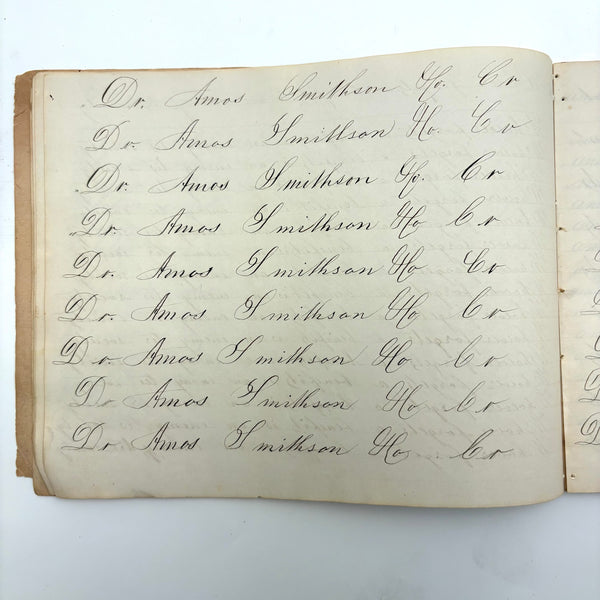 Dr. Amos Smithson Ho. Cr
Dr. Amos Smithson Ho. Cr
Dr. Amos Smithson Ho. Cr
Dr. Amos Smithson Ho Cr
Dr. Amos Smithson Ho Cr
Dr. Amos Smithson Ho Cr
Dr. Amos Smithson Ho Cr
Dr. Amos Smithson Ho Cr
Dr Amos Smithson Ho Cr